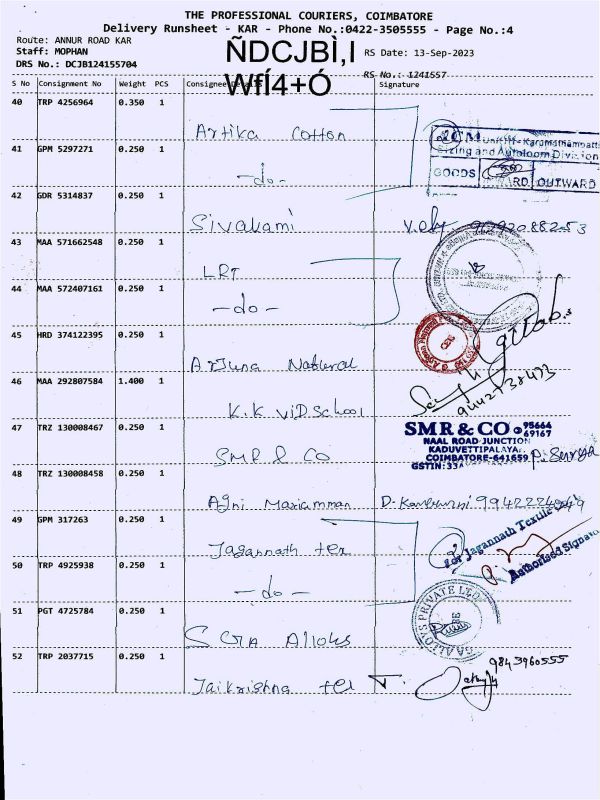 THE PROFESSIONAL COURIERS, COIMBATORE
Delivery Runsheet - KAR - Phone No.:0422-3505555 - Page No.:4
Route: ANNUR ROAD KAR
Staff: MOPHAN
ÑDCJBÌ,I
RS Date: 13-Sep-2023
DRS No.: DCJB124155704
WfÍ4+Ó
RS No.: 1241557
S No Consignment No Weight PCS Consignee Details Signature
40 TRP 4256964 0.350 1
Artika Cotton
41 GPM 5297271 0.250 1
-do-
GOODS INWARD OUTWARD
42 GDR 5314837 0.250 1
Sivakami
43 MAA 571662548 0.250 1
LRT
44 MAA 572407161 0.250 1
-do-
45 HRD 374122395 0.250 1
Arjuna Natural
46 MAA 292807584 1.400 1
K.K Vid School
9442738473
47 TRZ 130008467 0.250 1
SMR & CO
SMR & CO 95664 69167
NAAL ROAD JUNCTION
KADUVETTIPALAYA
COIMBATORE-641659
GSTIN:33A
P. Surya
48 TRZ 130008458 0.250 1
Agni Mariamman
49 GPM 317263 0.250 1
Jagannath tex
For Jagannath Textile
Authorised Signato
50 TRP 4925938 0.250 1
-do-
51 PGT 4725784 0.250 1
SGA Alloys
52 TRP 2037715 0.250 1
9843960555
Jaikrishna tex